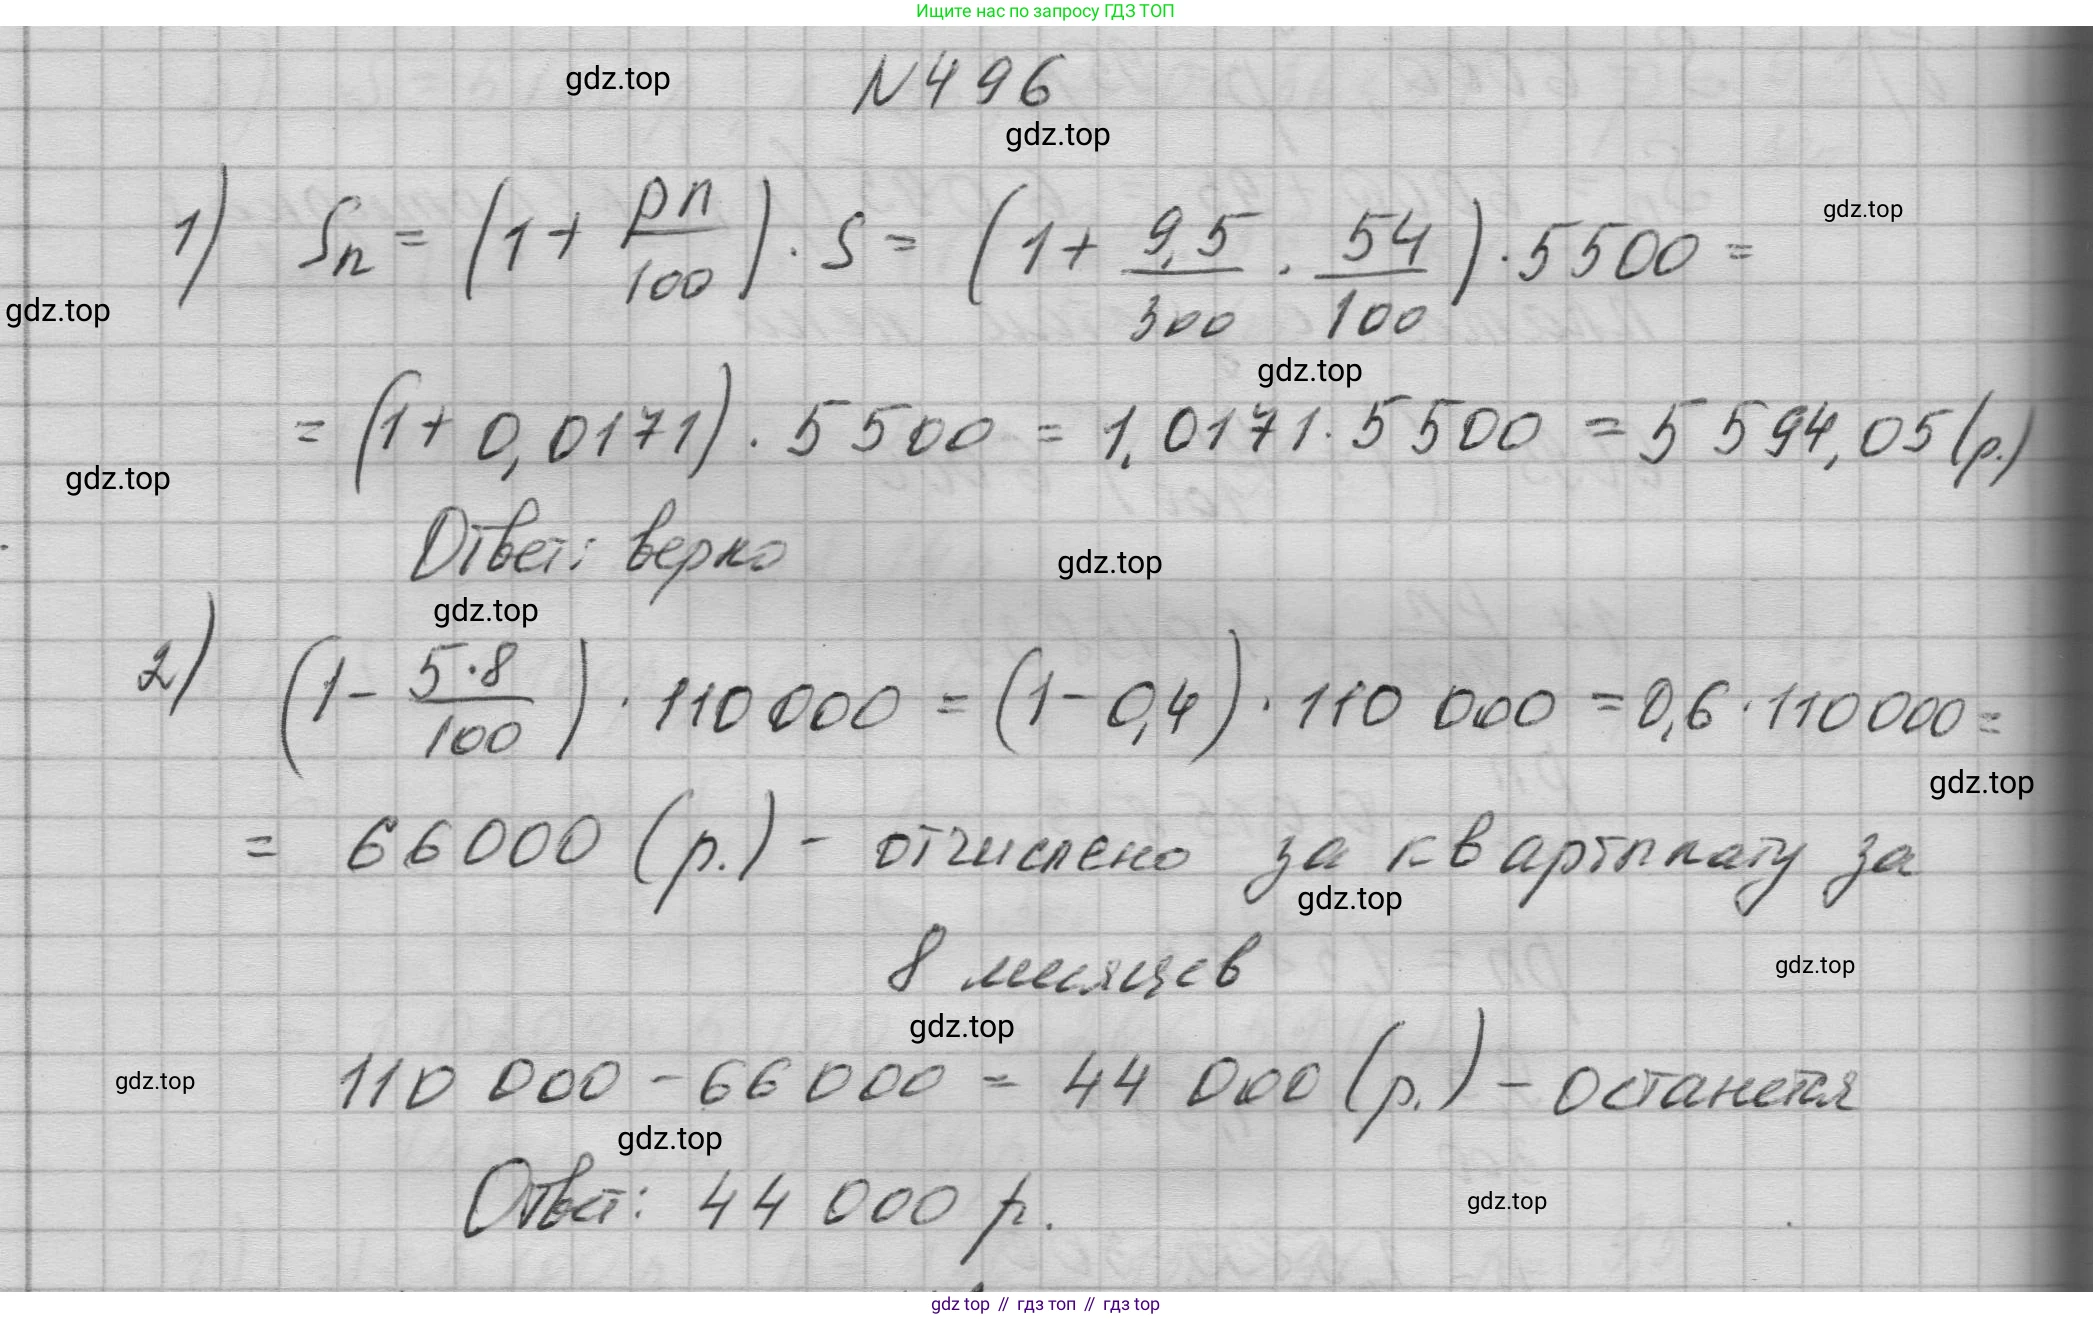 Ищите нас по запросу ГДЗ ТОП
gdz.top
N496
gdz.top
1) Sn = (1 + pn/100) · S = (1 + 9,5/300 · 54/100) · 5500 =
gdz.top
gdz.top
gdz.top
= (1 + 0,0171) · 5500 = 1,0171 · 5500 = 5594,05 (р.)
gdz.top
Ответ: верно
gdz.top
gdz.top
2) (1 - 5·8/100) · 110 000 = (1 - 0,4) · 110 000 = 0,6 · 110000 =
gdz.top
= 66000 (р.) - отчислено за квартплату за
gdz.top
8 месяцев
gdz.top
gdz.top
gdz.top
110 000 - 66 000 = 44 000 (р.) - останется
gdz.top
Ответ: 44 000 р.
gdz.top
gdz top // гдз топ // гдз top